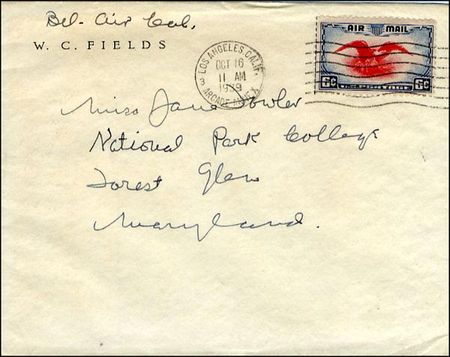 Bel-Air Cal.
W. C. FIELDS
LOS ANGELES, CALIF.
OCT 16
11 AM
1939
3
AIR MAIL
6c 6c
Miss Jane Fowler
National Park College
Forest Glen
Maryland.